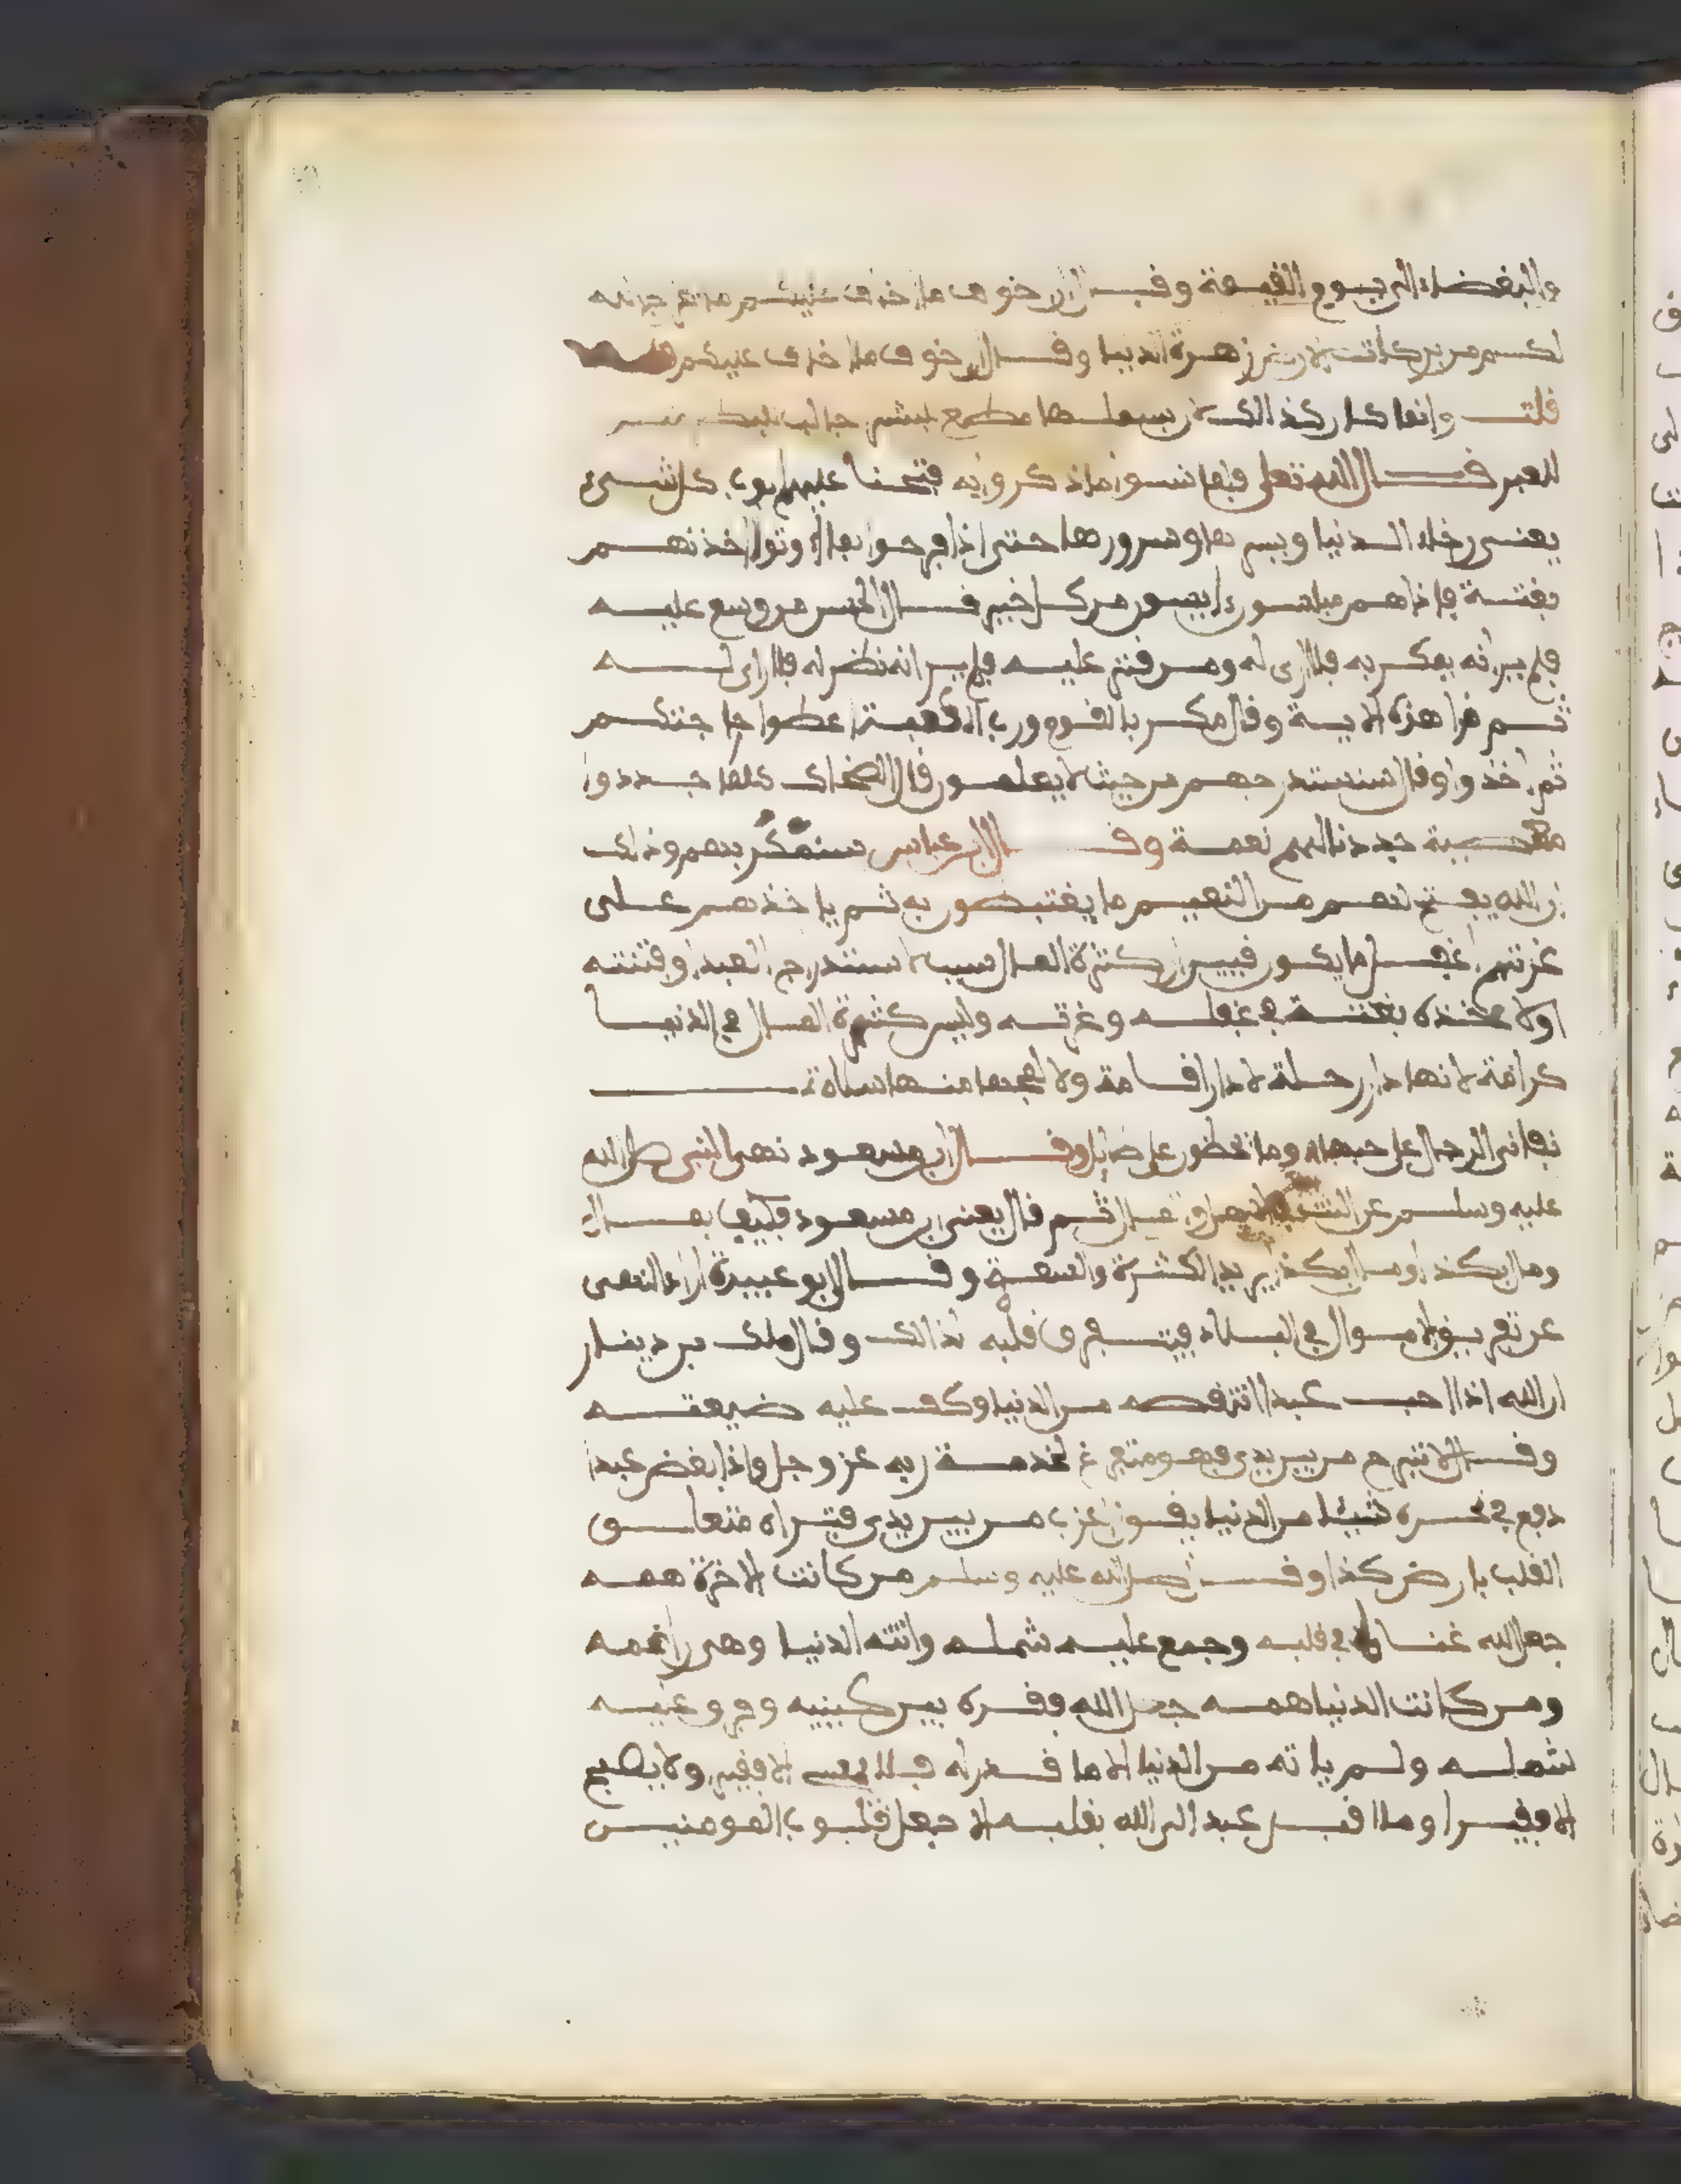 والبغضاء الى يوم القيمة وقال ان اخوف ما اخاف عليكم ما يخرج الله
لكم من بركات الارض زهرة الدنيا وقال ان اخوف ما اخاف عليكم
قلت وانما كان كذالك لان
للغير قال الله تعلى فلما نسوا ما ذكروا به فتحنا عليهم ابوب كل شىء
يعنى رخاء الدنيا ويسرها وسرورها حتى اذا فرحوا بما اوتوا اخذنهم
بغتة فاذا هم مبلسون ايسون من كل خير قال الحسن من وسع عليه
فلم ير انه يمكر به فلا راى له ومن قتر عليه فلم ير انه نظر له فلا راى له
ثم قرا هذه الاية وقال مكر بالقوم ورب الكعبة اعطوا حاجتكم
ثم اخذوا وقال سنستدرجهم من حيث لا يعلمون قال الضحاك كلما جددوا
معصية جددنا لهم نعمة وقال ابن عباس سنمكر بهم وذلك
ان الله يفتح لهم من النعيم ما يغتبطون به ثم ياخذهم على
غرتهم اغفل ما يكون فيبين ان كثرة المال سبب لاستدرج العبد وفتنته
ولاخذه بغتة في غفلته وغرته وليس كثرة المال في الدنيا
كرامة لانها دار رحلة لا دار اقامة ولا
تفانى الرجال على حبها وما يحصلون على طايل وقال ابن مسعود نهى النبى صلى الله
عليه وسلم عن التبقر في الاهل والمال ثم قال يعنى ابن مسعود فكيف بمال
ومال بكذا ومال بكذا يريد الكثرة والسعة وقال ابو عبيدة اراد النهى
عن تفريق الاموال في البلاد فيتفرق قلبه لذالك وقال ملك بن دينار
ان الله اذا احب عبدا انتقصه من الدنيا وكف عليه ضيعته
وقال لا تبرح من بين يدى فهو متفرغ لخدمة ربه عز وجل واذا ابغض عبدا
دفع في نحره شيئا من الدنيا يقول اعزب من بين يدى فتراه متعلق
القلب بارض كذا وقال صلى الله عليه وسلم من كانت الاخرة همه
جعل الله غناه في قلبه وجمع عليه شمله واتته الدنيا وهى راغمه
ومن كانت الدنيا همه جعل الله فقره بين عينيه وفرق عليه
شمله ولم ياته من الدنيا الا ما قدر له فلا يمسى الا فقير ولا يصبح
الا فقيرا وما اقبل عبد الى الله بقلبه الا جعل قلوب المومنين